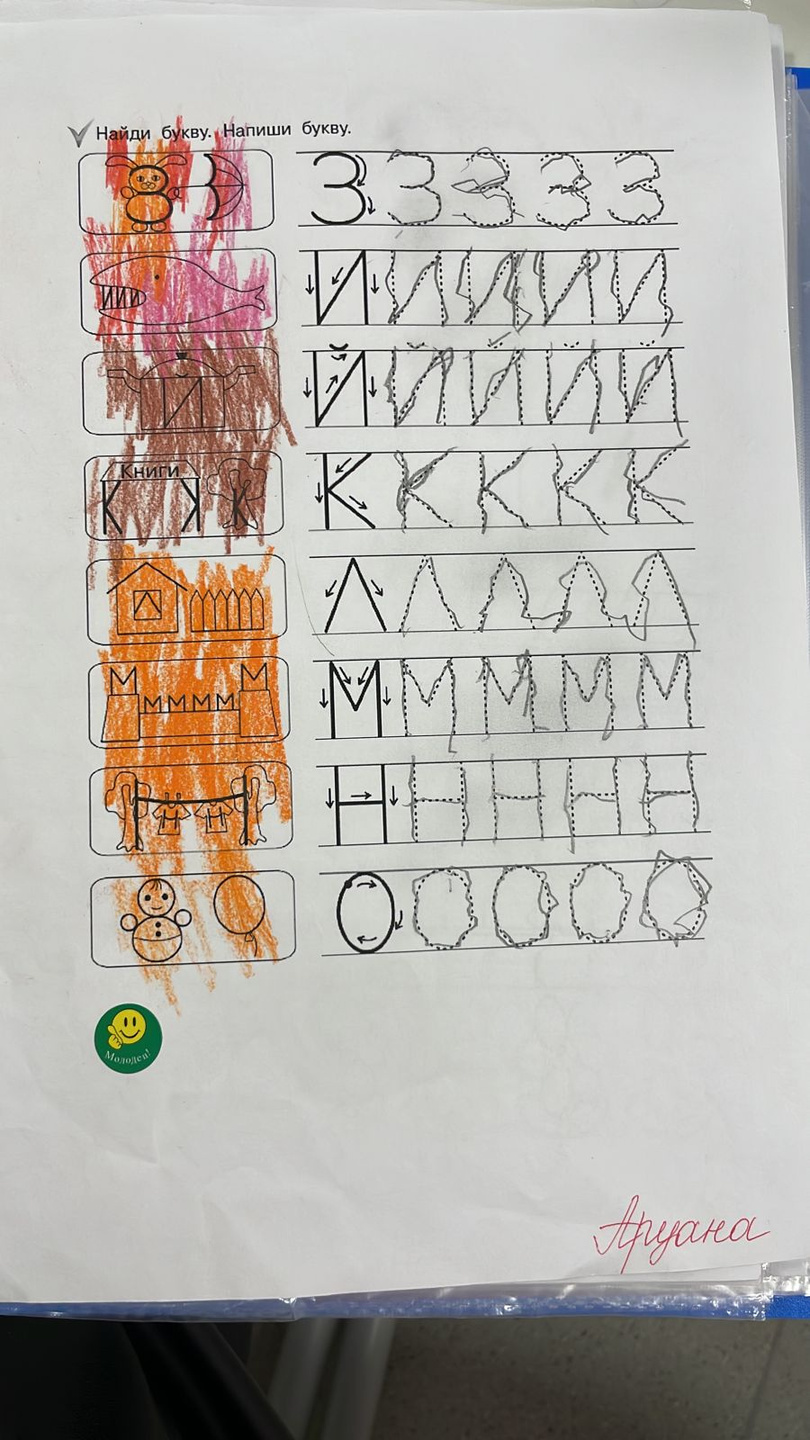 Найди букву. Напиши букву.
З З З З З
ИИИ И И И И И
И Й Й Й Й Й
Книги
К К К К К К К К
Л Л Л Л Л Л
М М М М М М М М М М М
Н Н Н Н Н
О О О О О
Молодец!
Аруана